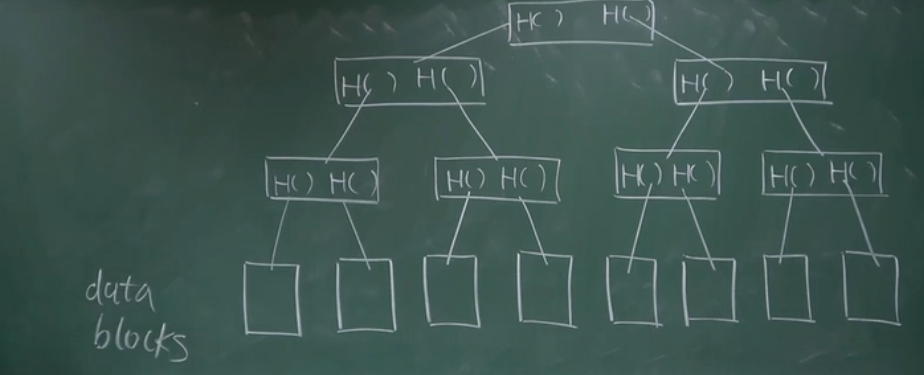 H( ) H( )
H( ) H( ) H( ) H( )
H( ) H( ) H( ) H( ) H( ) H( ) H( ) H( )
data
blocks